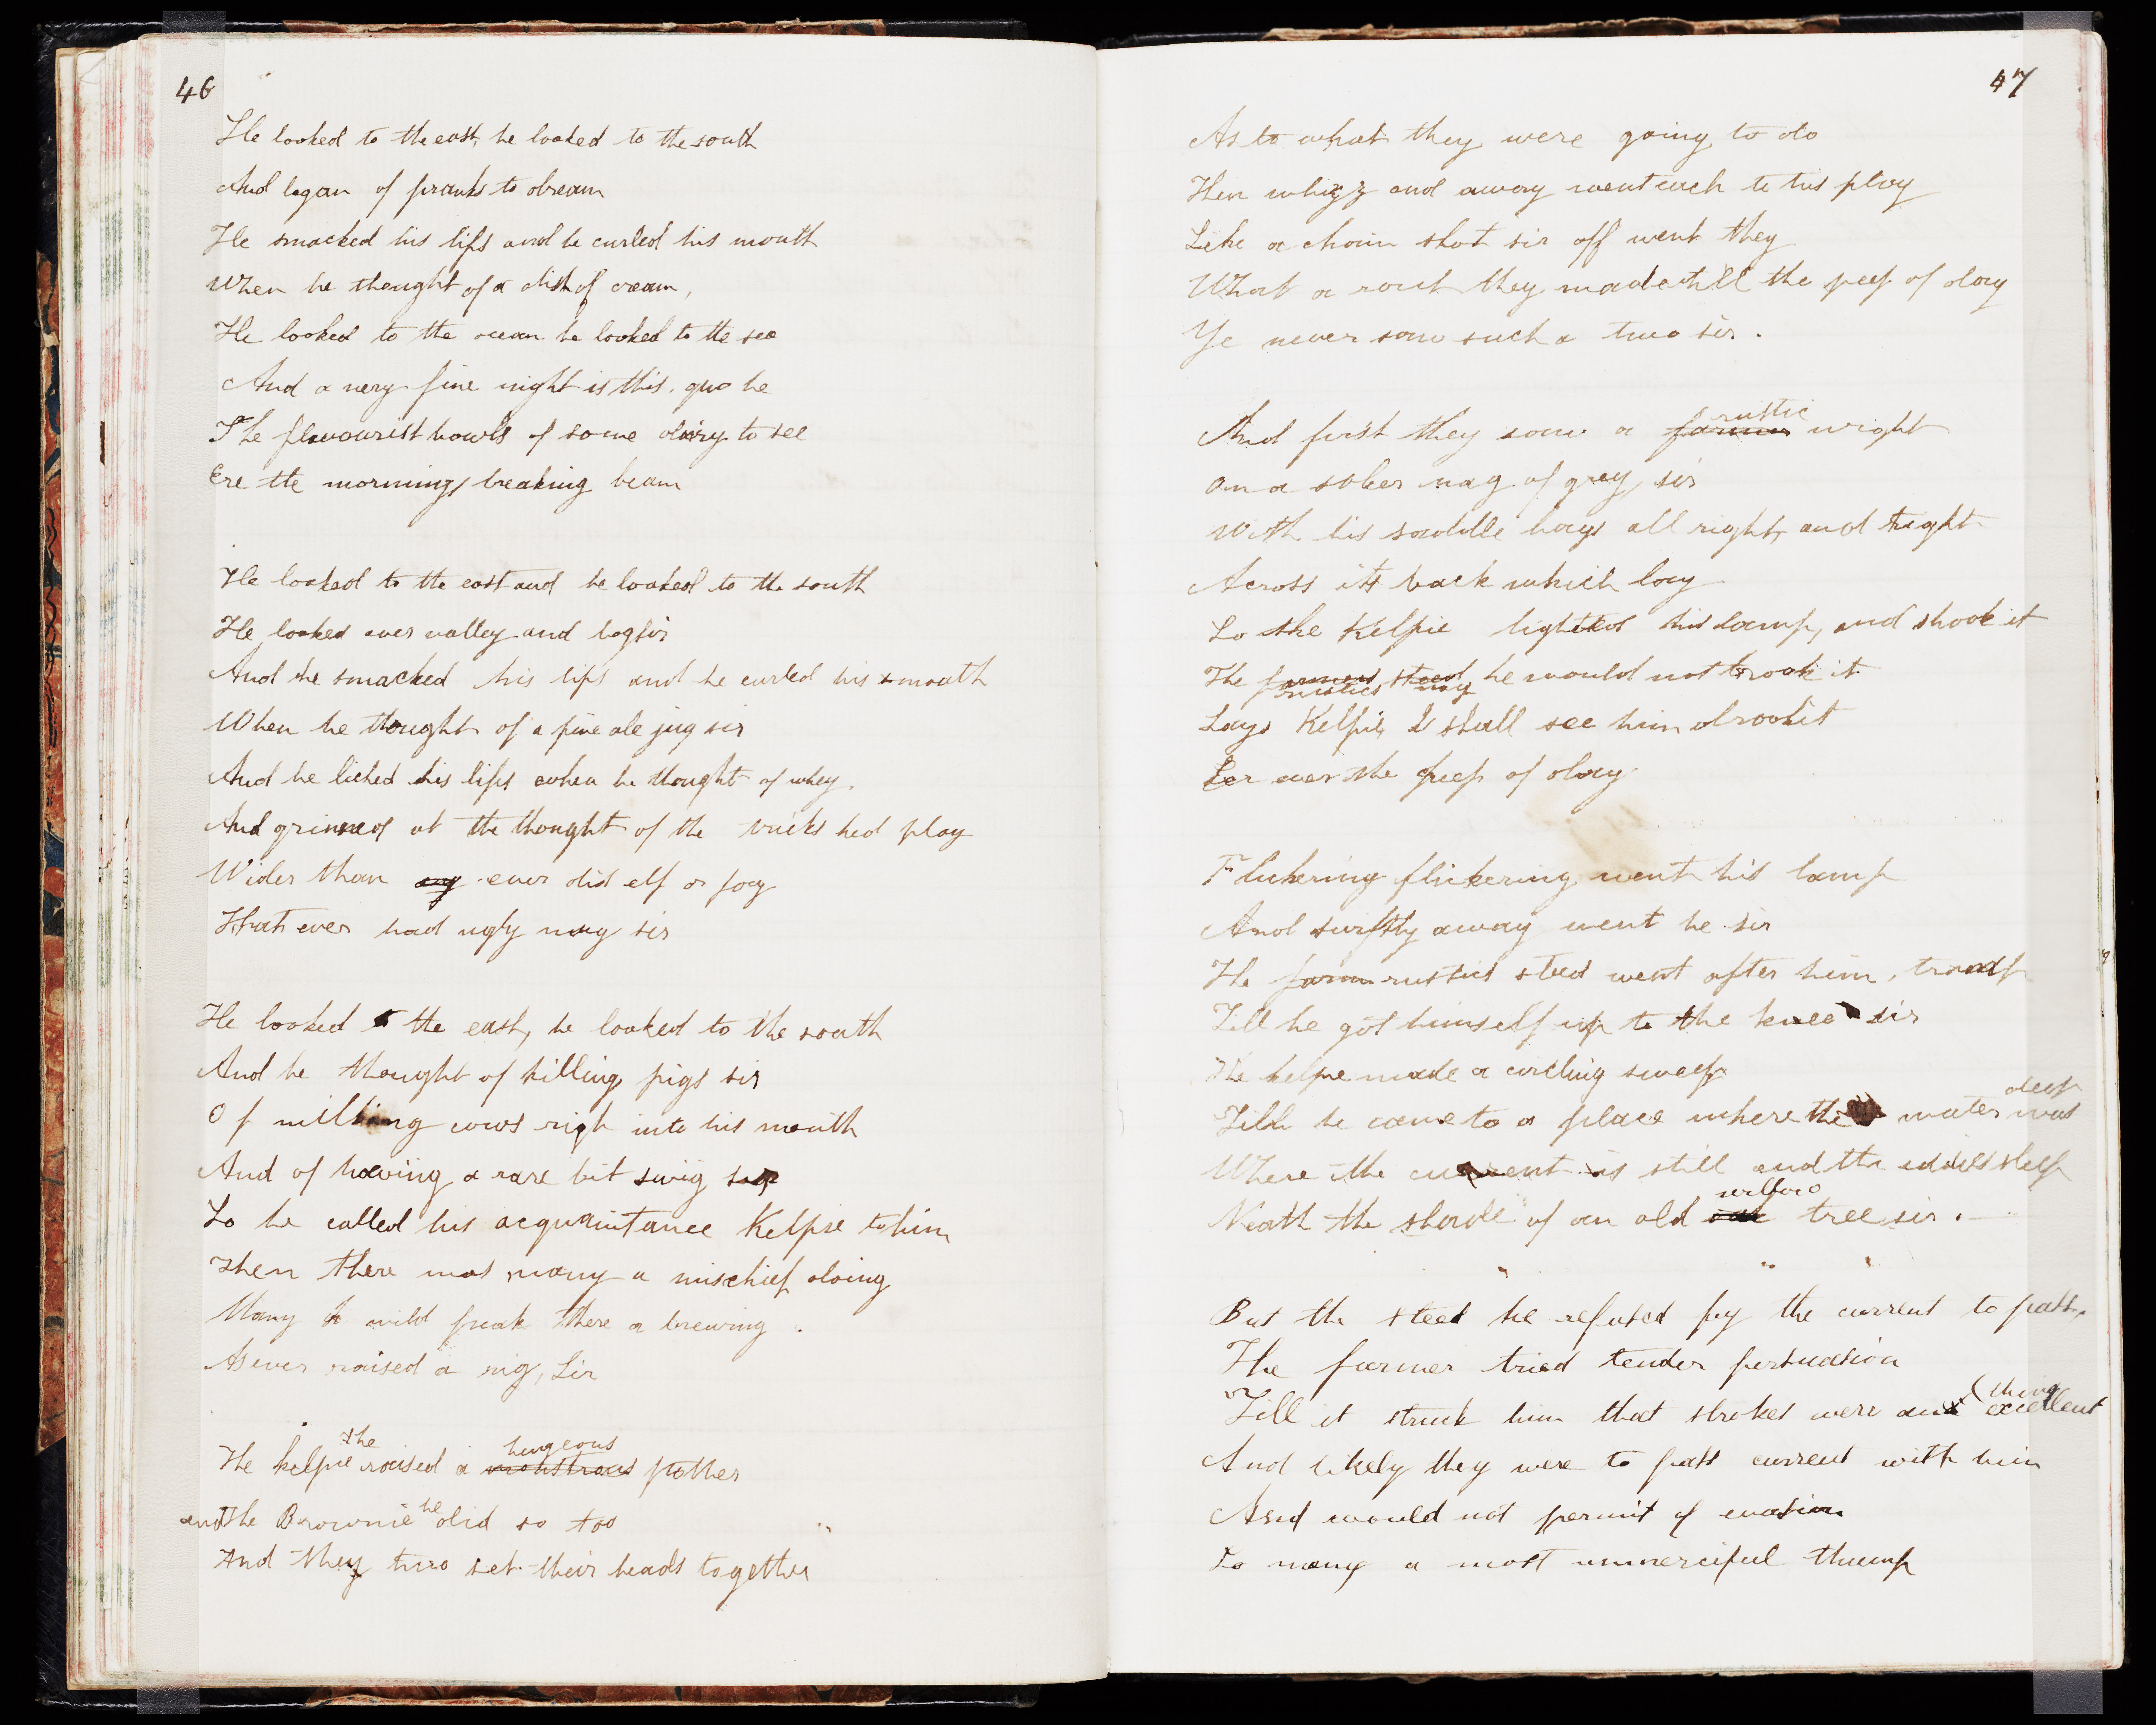 46
He looked to the east, he looked to the south
And began of pranks to dream
He smacked his lips and he curled his mouth
When he thought of a dish of cream,
He looked to the ocean he looked to the sea
And a very fine night is this, quo he
The flavourist bowls of some dairy to see
Ere the mornings breaking beam
He looked to the east and he looked to the south
He looked over valley and bog sir
And he smacked his lips and he curled his mouth
When he thought of a fine ale jug sir
And he licked his lips when he thought of whey.
And grinned at the thought of the tricks hed play
Wider than any ever did elf or fay
That ever had ugly mug sir
He looked to the east, he looked to the south
And he thought of killing pigs sir
Of milking cows righ into his mouth
And of having a rare bit swig sir
So he called his acquaintance Kelpie to him
Then there was many a mischief doing
Many a wild freak there a brewing.
As ever raised a rig, Sir
the hugeous
The kelpie raised a monstrous pother
and The Brownie he did so too
And they two set their heads together
47
As to what they were going to do
Then whizz and away went each to his play
Like a chain shot sir off went they
What a rout they made till the peep of day
Ye never saw such a two sir.
rustic
And first they saw a farmer wight
On a sober nag of grey, sir
With his saddle bags all right, and tight
Across its back which lay
So the Kelpie lighted his lamp, and shook it
The farmers steed he would not brook it
rustics nag
Says Kelpie, I shall see him drookit
Eer ever the peep of day
Flickering flickering went his lamp
And swiftly away went he sir
The farm rustics steed went after him, tramp
Till he got himself up to the knee sir
The kelpie made a circling sweep
deep
Till he came to a place where the water was
Where the current is still and the eddies sleep
willow
Neath the shade of an old oak tree sir.
But the steed he refused fry the current to pass.
The farmer tried tender persuasion
thing
Till it struck him that strokes were an excellent
And likely they were to pass current with him
And would not permit of evasion
So many a most unmerciful thump